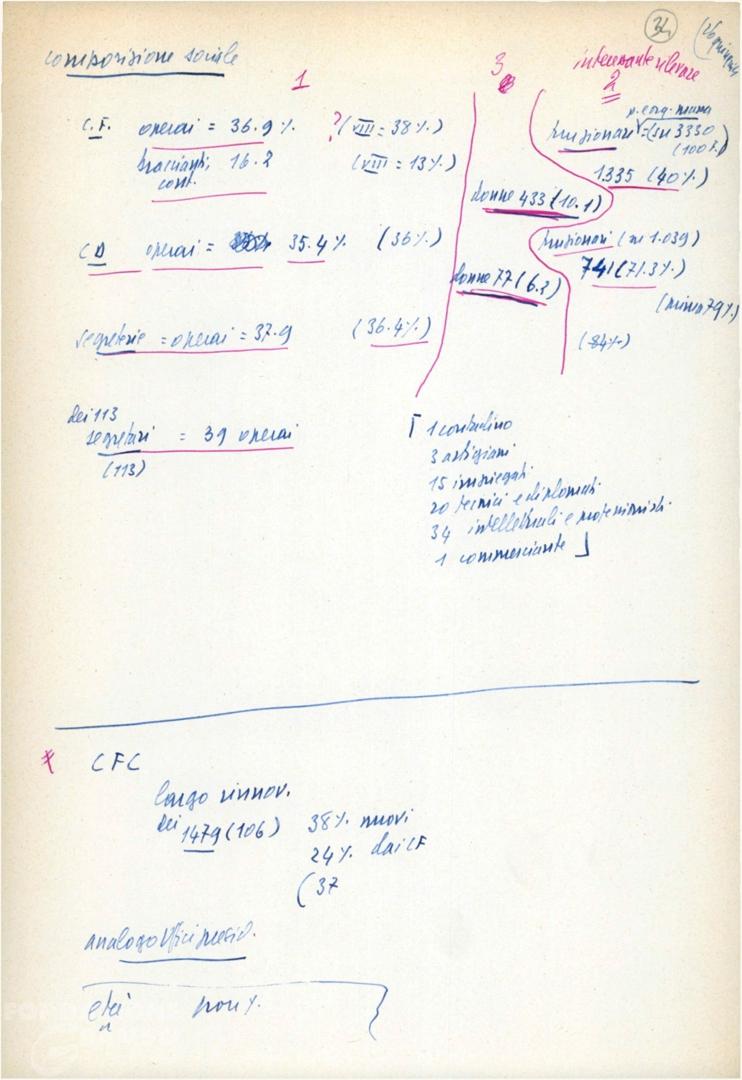 34
composizione sociale
1
3
interessante rilevare
2
C.F. operai = 36.9%
?(VIII = 38%)
braccianti, 16.2
cont.
(VIII = 13%)
funzionari = (su 3330
(100 F.)
1335 (40%)
donne 433 (10.1)
CD operai = 35.4% (36%)
funzionari (su 1.039)
741 (71.3%)
donne 77 (6.3)
(prima 79%)
segreterie = operai = 37.9 (36.4%)
(84%)
dei 113
segretari = 39 operai
(113)
1 contadino
3 artigiani
15 impiegati
20 tecnici e diplomati
34 intellettuali e professionisti
1 commerciante
* CFC
largo rinnov.
dei 1479 (106) 38% nuovi
24% dai CF
(37
analogo Uffici presid.
età